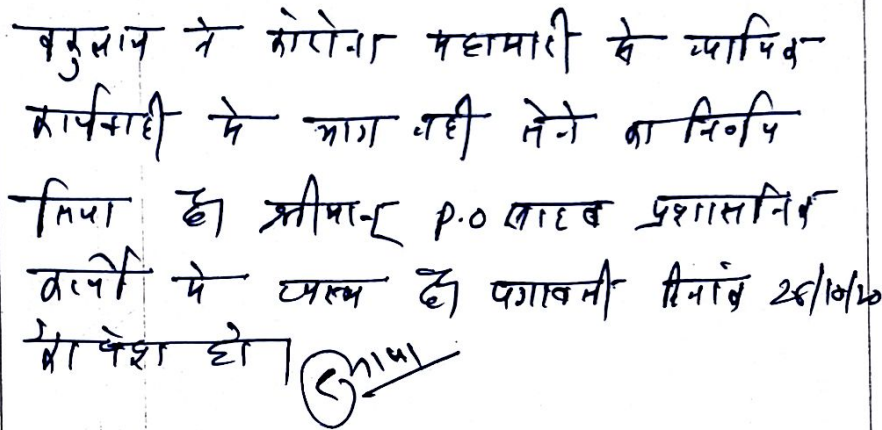 वकुलाय ने कोरोना महामारी से व्यापिक
कार्यवाही मे भाग नही लेने का निर्णय
लिया है। श्रीमान् P.O साहब प्रशासनिक
कार्यो मे व्यस्त है। पत्रावली दिनांक 26/10/20
को पेश हो।